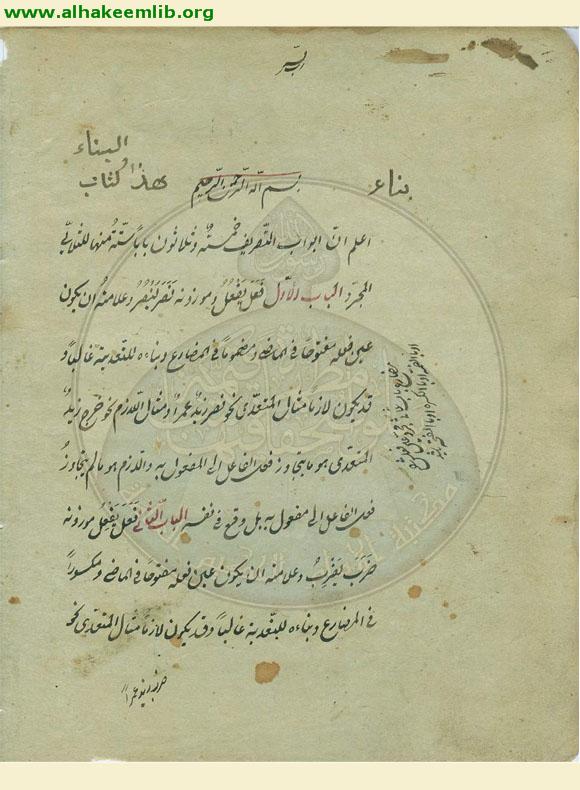 www.alhakeemlib.org
رب يسر
البناء
هذا كتاب
بناء
بسم الله الرحمن الرحيم
اعلم انّ ابواب التصريف خمسة وثلاثون باباً ستّة منها للثلاثي
المجرد الباب الاوّل فَعَلَ يَفْعُلُ موزونه نَصَرَ يَنْصُرُ وعلامته ان يكون
عين فعله مفتوحاً في الماضي ومضموماً في المضارع وبناءه للتعدية غالباً و
قد يكون لازماً مثال المتعدّي نحو نصر زيدٌ عمراً ومثال اللازم نحو خرج زيدٌ
المتعدّي هو ما يتجاوز فعل الفاعل الى المفعول به واللازم هو ما لم يتجاوز
فعل الفاعل الى المفعول به بل وقع في نفسه الباب الثاني فَعَلَ يَفْعِلُ موزونه
ضَرَبَ يَضْرِبُ وعلامته ان يكون عين فعله مفتوحاً في الماضي ومكسوراً
في المضارع وبناءه للتعدية غالباً وقد يكون لازماً مثال المتعدّي نحو
ضرب زيد عمراً